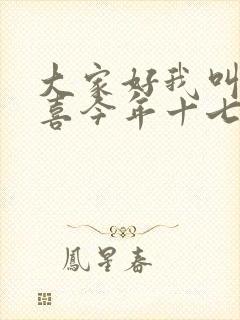 大家好我叫
喜今年十七
鳳星春